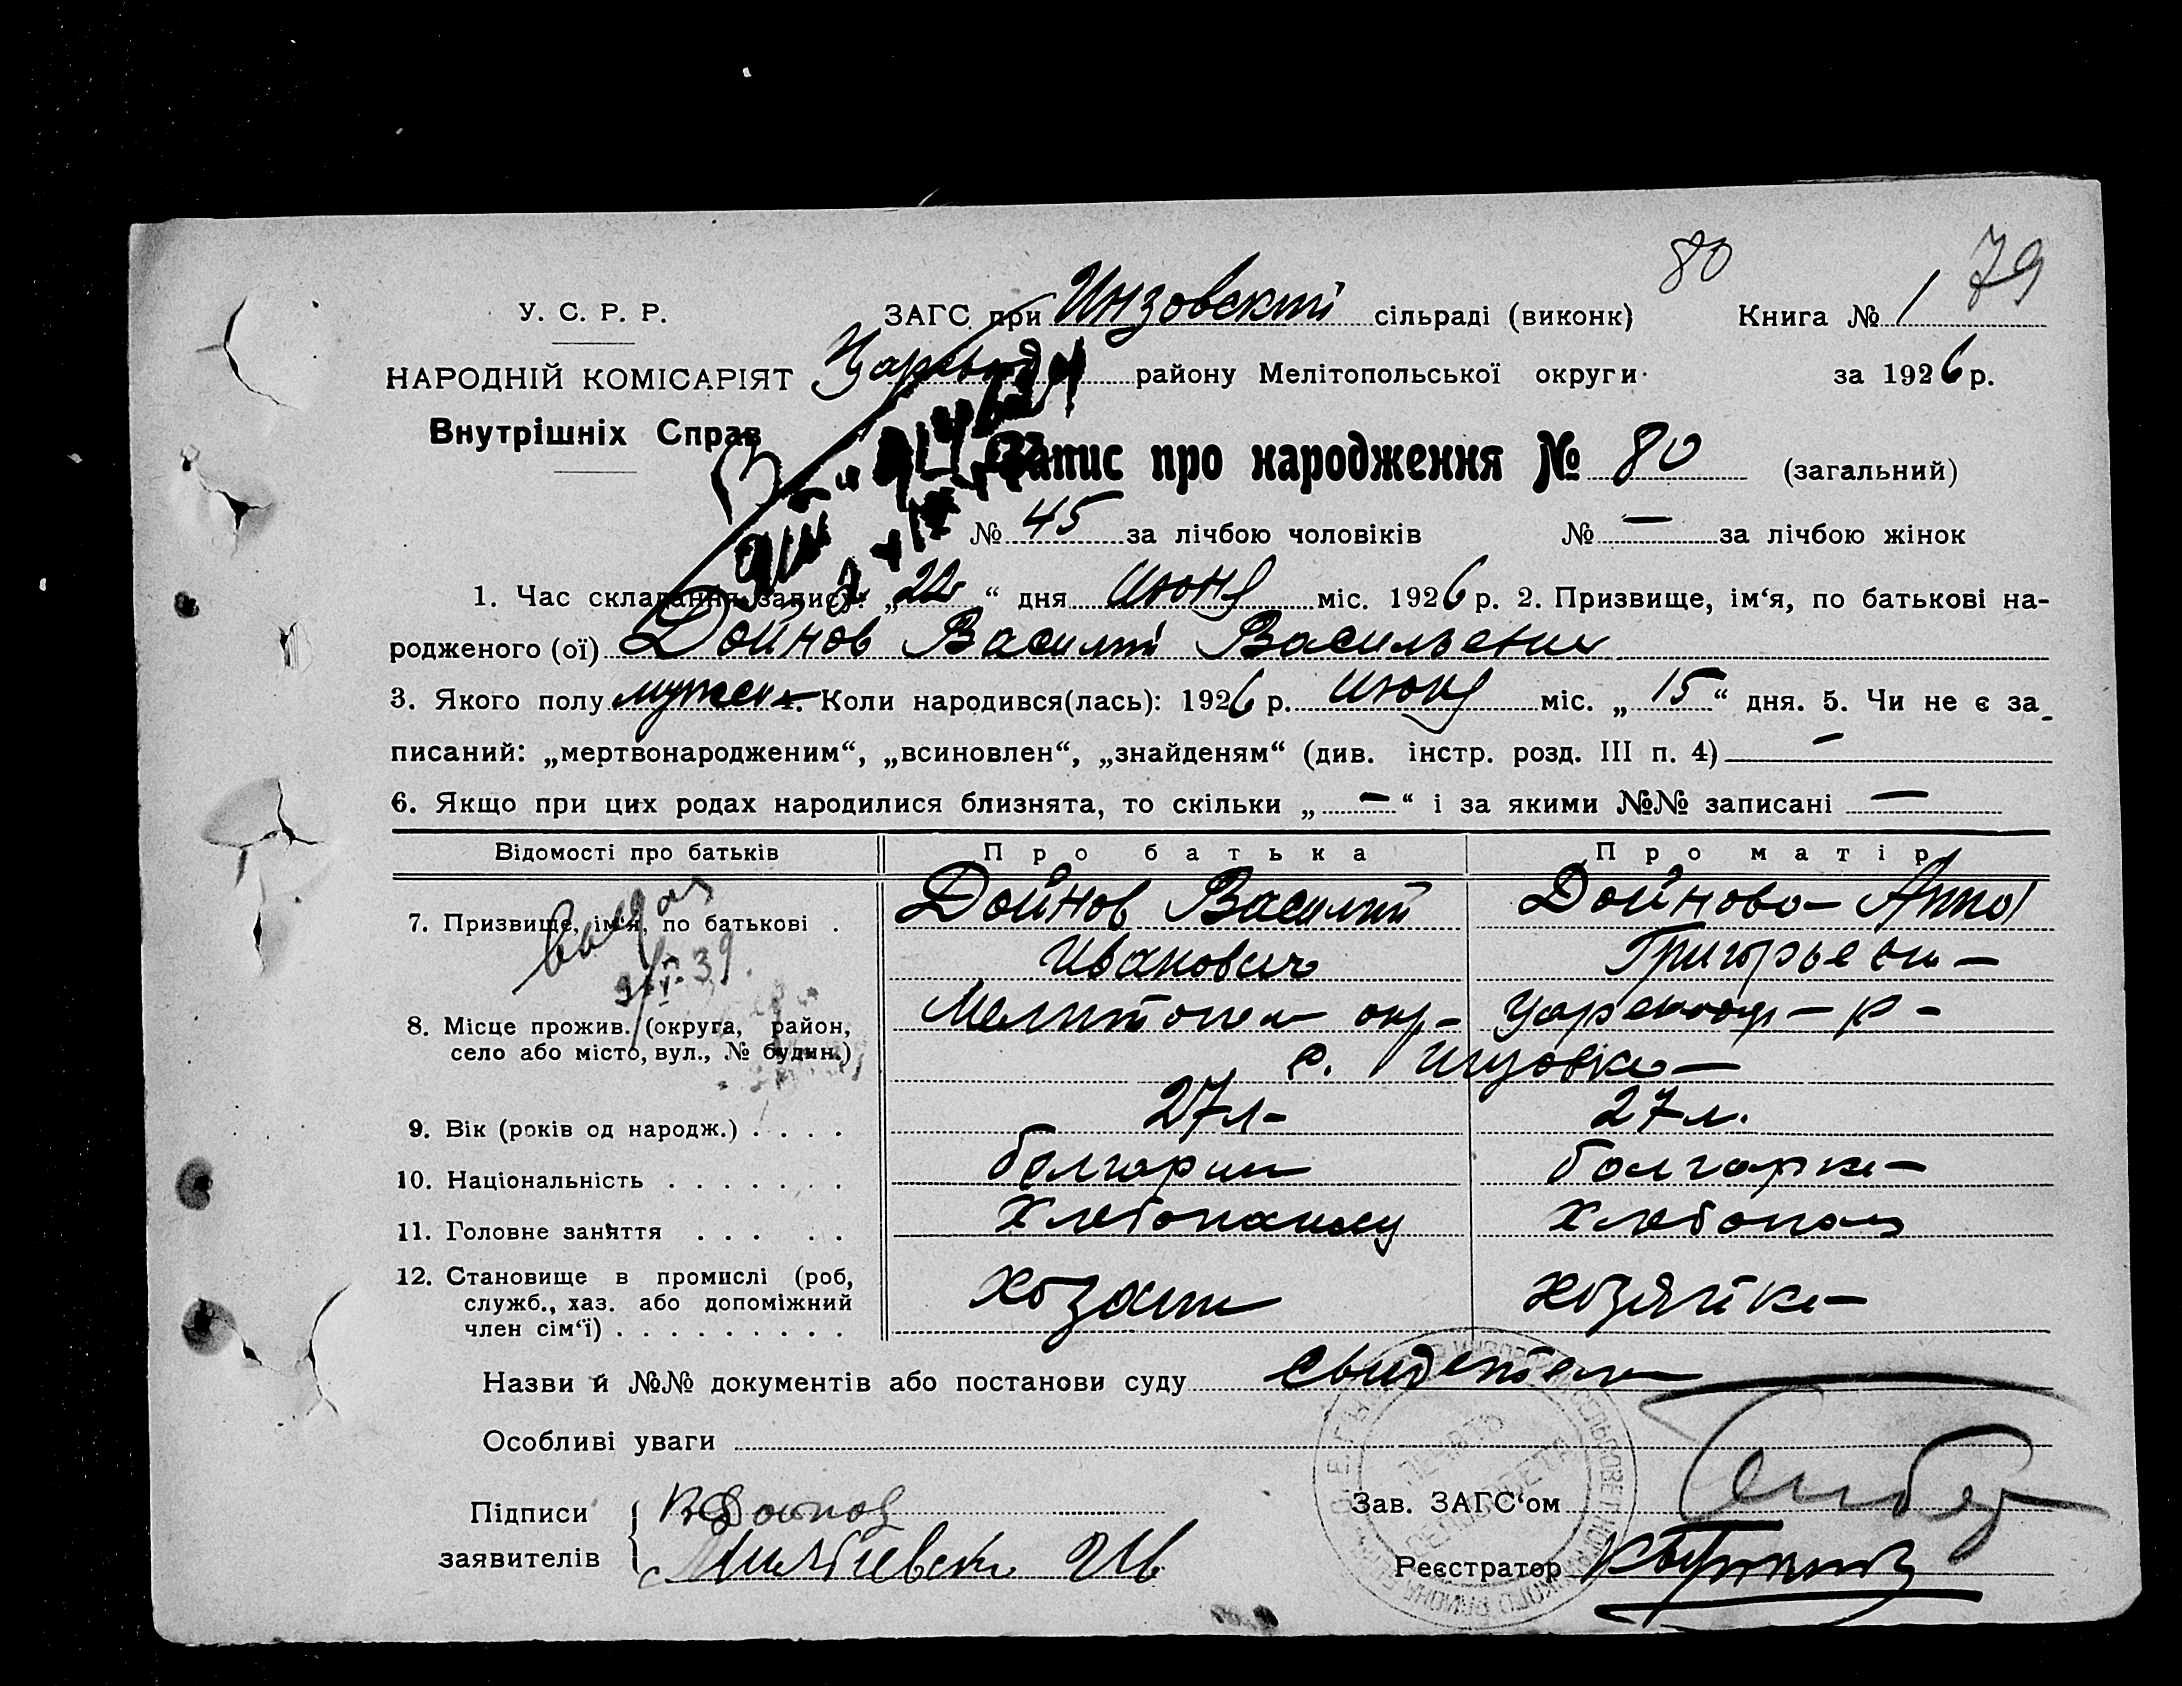 80
79
У. С. Р. Р.
ЗАГС при Инзовский сільраді (виконк)
Книга № 1
НАРОДНІЙ КОМІСАРІЯТ
району Мелітопольської округи
за 1926 р.
Внутрішніх Справ
Запис про народження № 80 (загальний)
№ 45 за лічбою чоловіків № — за лічбою жінок
1. Час складання запису: „22“ дня Июня міс. 1926 р. 2. Призвище, ім‘я, по батькові на-
родженого (ої) Дойнов Василий Васильевич
3. Якого полу мужск 4. Коли народився(лась): 1926 р. Июня міс. „15“ дня. 5. Чи не є за-
писаний: „мертвонародженим“, „всиновлен“, „знайденям“ (див. інстр. розд. III п. 4) —
6. Якщо при цих родах народилися близнята, то скільки „—“ і за якими №№ записані —
Відомості про батьків Про батька Про матір
7. Призвище, ім‘я, по батькові . Дойнов Василий Дойнова Анна
Иванович Григорьевн—
39.
8. Місце прожив. (округа, район, Мелитопол окр— р—
село або місто, вул., № будин.) с. Инзовка—
9. Вік (років од народж.) . . . . 27 л— 27 л.
10. Національність . . . . . . . болгарин болгарка—
11. Головне заняття . . . . . Хлебопашец Хлебопаш
12. Становище в промислі (роб, Хозяин хозяйка—
служб., хаз. або допоміжний
член сім‘ї) . . . . . . . . .
Назви й №№ документів або постанови суду свидетели
Особливі уваги
Підписи В Дойнов
заявителів
Зав. ЗАГС‘ом
Реєстратор